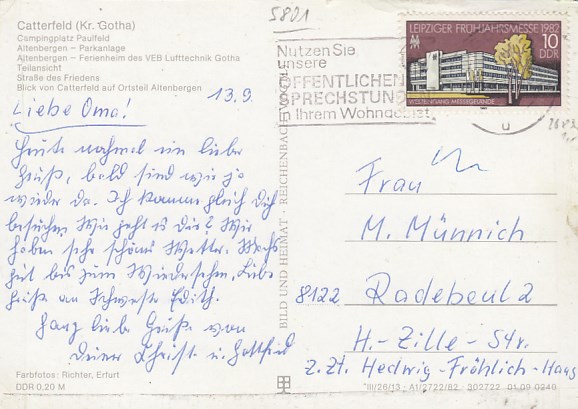 5801
Catterfeld (Kr. Gotha)
Campingplatz Paulfeld
Altenbergen – Parkanlage
Altenbergen – Ferienheim des VEB Lufttechnik Gotha
Teilansicht
Straße des Friedens
Blick von Catterfeld auf Ortsteil Altenbergen
13.9.
Liebe Oma!
Heute nochmal ein lieber
Gruß, bald sind wir ja
wieder da. Ich komme gleich Dich
besuchen. Wie geht es Dir? Wir
haben sehr schönes Wetter. Machs
gut bis zum Wiedersehn, Liebe
Grüße an Schwester Edith.
Ganz liebe Grüße von
Deiner Christl u. Gottfried
Farbfotos: Richter, Erfurt
DDR 0,20 M
BILD UND HEIMAT · REICHENBACH
Nutzen Sie
unsere
ÖFFENTLICHEN
SPRECHSTUNDEN
in Ihrem Wohngebiet
u
LEIPZIGER FRÜHJAHRSMESSE 1982
10
DDR
MESSEGELÄNDE
Frau
M. Münnich
8122 Radebeul 2
H.-Zille-Str.
z.Zt. Hedwig-Fröhlich-Haus
*III/26/13 · A1/2722/82 302722 01 09 0240